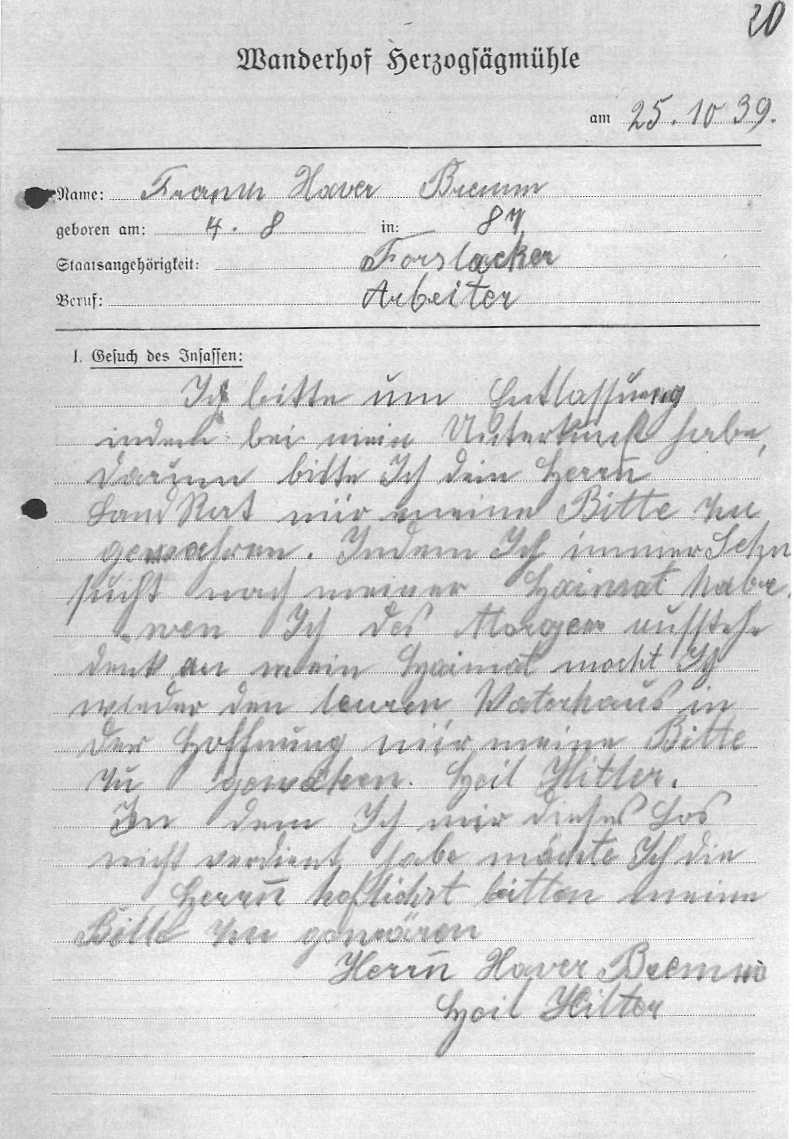 20
Wanderhof Herzogsägmühle
am 25. 10 39.
Name: Franz Xaver Bremm
geboren am: 4. 8 in: 87
Staatsangehörigkeit: Forslacker
Beruf: Arbeiter
1. Gesuch des Insassen:
Ich bitte um Entlassung
bei mein Unterkunft habe,
darum bitte Ich dein Herrn
LandRat mir meine Bitte zu
gewahren. Indem Ich immer Sehn
sucht nach meiner Haimat habe.
wen Ich des Morgen aufstehe
denk an mein Haimat mocht Ich
wieder den teuren Vaterhaus in
der Hoffnung mir meine Bitte
zu gewahen. Heil Hitler.
In dem Ich mir dieses Los
nicht verdient habe möchte Ich die
Herrn hoflichst bitten meine
Bitte zu gewären
Herrn Xaver Bremm
Heil Hitler